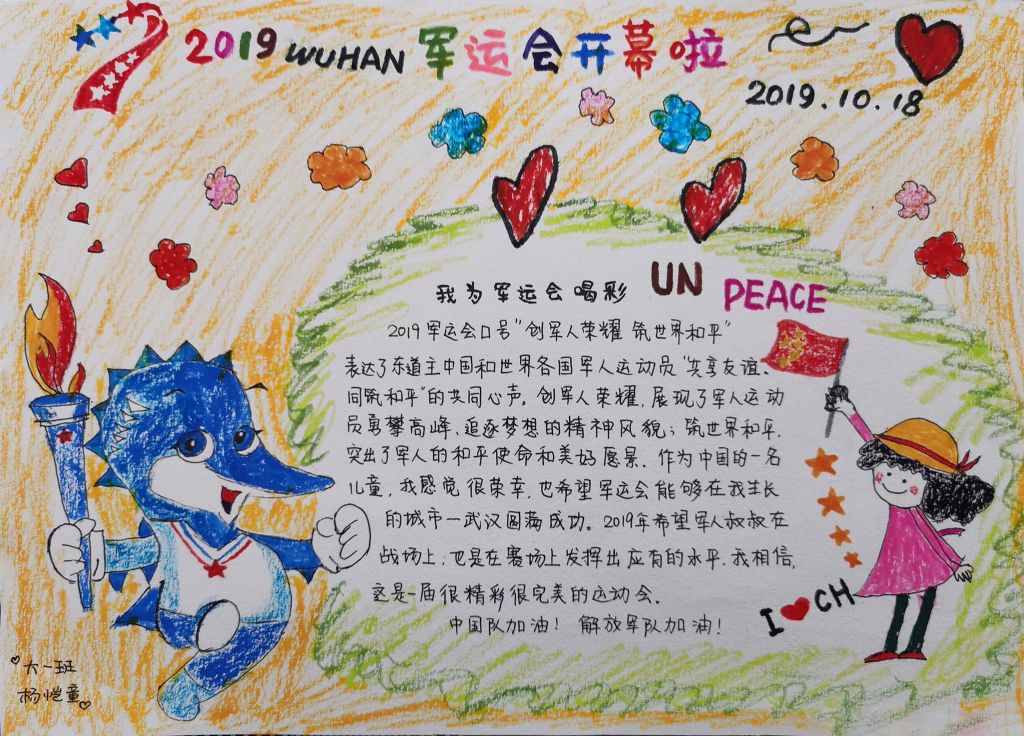 2019 WUHAN 军运会开幕啦
2019.10.18
UN PEACE
我为军运会喝彩
2019军运会口号“创军人荣耀 筑世界和平”
表达了东道主中国和世界各国军人运动员“共享友谊、
同筑和平”的共同心声。创军人荣耀,展现了军人运动
员勇攀高峰、追逐梦想的精神风貌;筑世界和平,
突出了军人的和平使命和美好愿景。作为中国的一名
儿童,我感觉很荣幸,也希望军运会能够在我生长
的城市一武汉圆满成功。2019年希望军人叔叔在
战场上,也是在赛场上发挥出应有的水平.我相信,
这是一届很精彩很完美的运动会.
中国队加油! 解放军队加油!
I ❤ CH
大一班
杨恺童